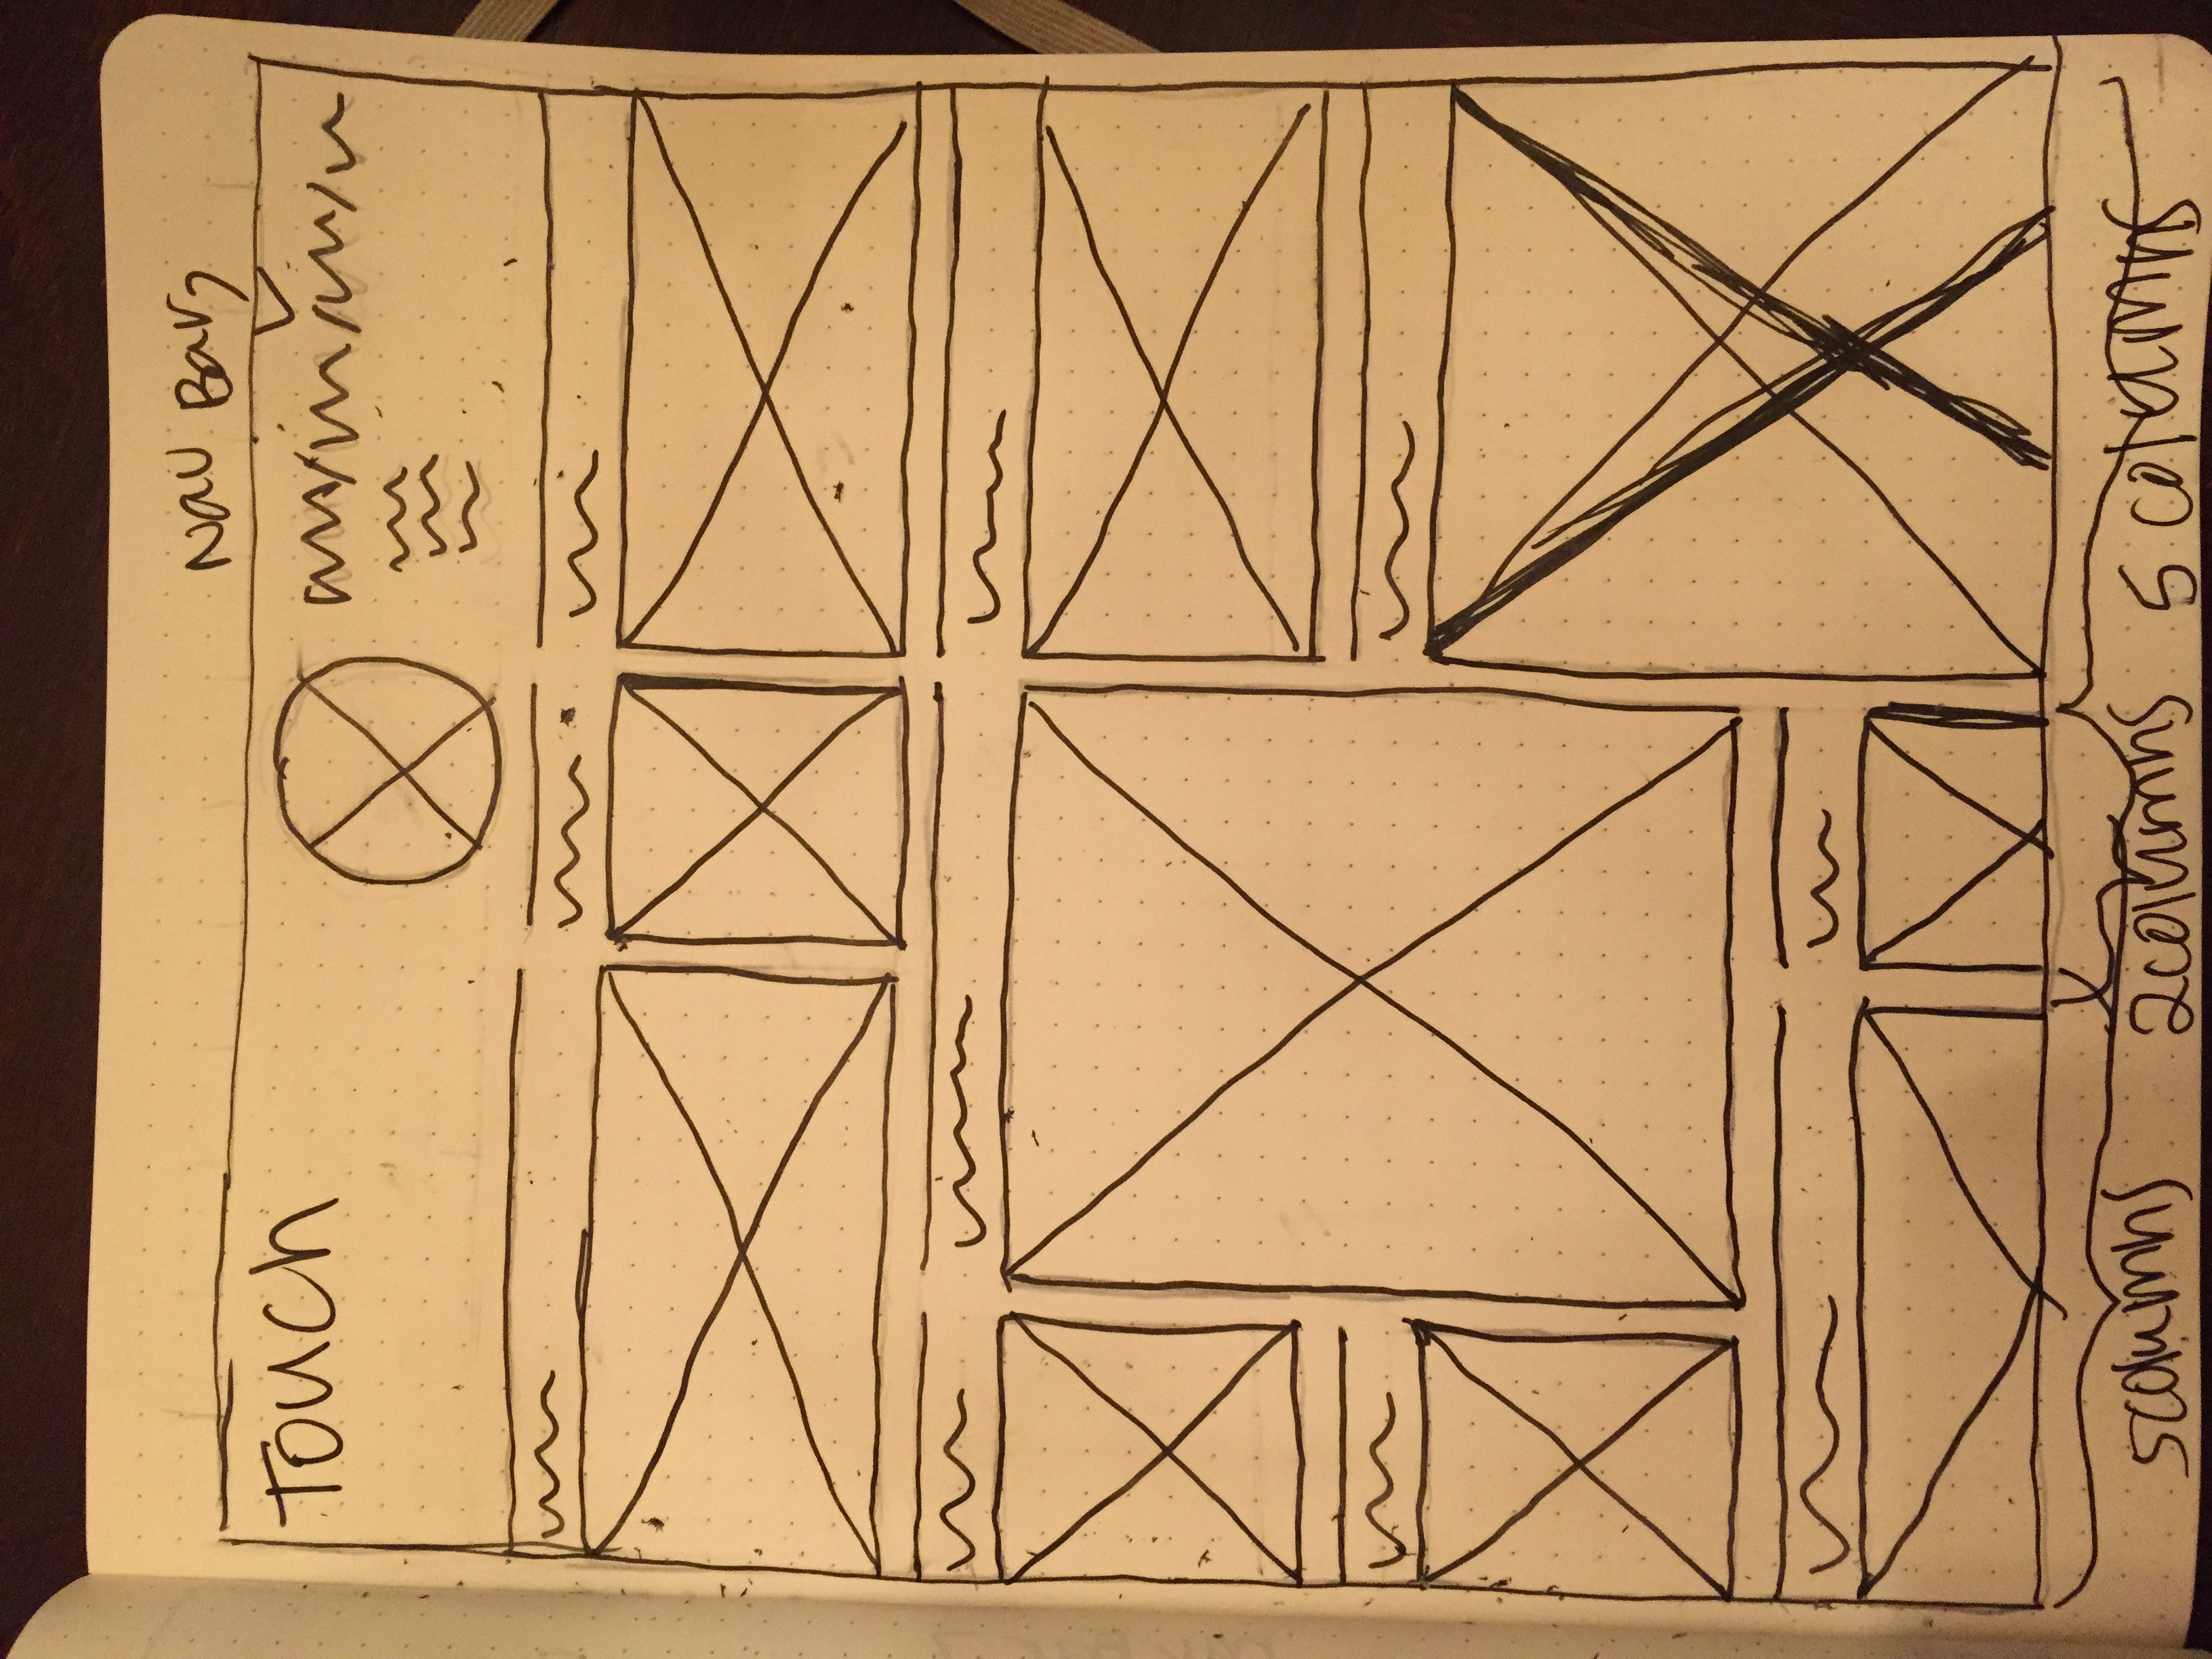 Nav Bar
Touch
5 columns 2 columns 5 columns